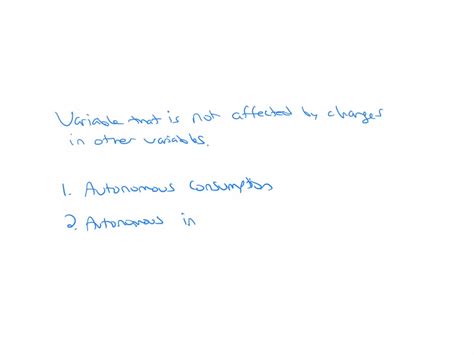 Variable that is not affected by changes
in other variables.
1. Autonomous consumption
2. Autonomous in